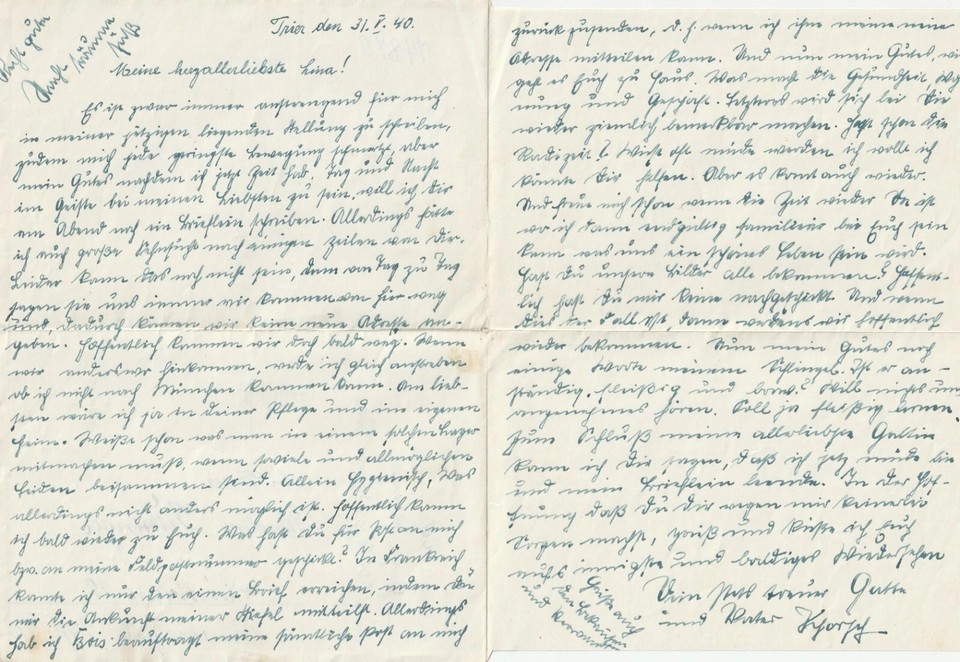 Recht gute
Nacht träume
süß
Trier den 31. V. 40.
Meine herzallerliebste Lina!
Es ist zwar immer anstrengend für mich
in meiner jetzigen liegenden Stellung zu schreiben,
zudem mich jede geringste Bewegung schmerzt, aber
mein Gutes nachdem ich jetzt Zeit hab, Tag und Nacht
im Geiste bei meinen Liebsten zu sein, will ich Dir
am Abend noch ein Brieflein schreiben. Allerdings hätte
ich auch große Sehnsucht nach einigen Zeilen von Dir.
Leider kann das noch nicht sein, denn von Tag zu Tag
sagen sie uns immer wir kommen von hier weg
und dadurch können wir keine neue Adresse an-
geben. Hoffentlich kommen wir doch bald weg. Wenn
wir anderswo hinkommen, werde ich gleich anstreben
ob ich nicht nach München kommen kann. Am lieb-
sten wäre ich ja in Deiner Pflege und im eigenen
Heim. Weißt schon was man in einem solchen Lager
mitmachen muß, wenn soviele und allmöglichen
Leiden beisammen sind. Allein hygienisch, was
allerdings nicht anders möglich ist. Hoffentlich komm
ich bald wieder zu Euch. Was hast Du für Post an mich
bzw. an meine Feldpostnummer geschickt? In Frankreich
konnte ich nur den einen Brief erreichen, indem Du
mir die Ankunft meiner Stiefel mitteilst. Allerdings
hab ich beauftragt meine sämtliche Post an mich
zurückzusenden, d.h. wenn ich ihm meine neue
Adresse mitteilen kann. Und nun mein Gutes, wie
geht es Euch zu Haus. Was macht die Gesundheit, Woh-
nung und Geschäft. Letzteres wird sich bei Dir
wieder ziemlich bemerkbar machen. Habt schon die
Radizeit? Wirst oft müde werden ich wollt ich
könnte Dir helfen. Aber es kommt auch wieder.
Und freue mich schon wenn die Zeit wieder da ist
wo ich dann endgültig familiär bei Euch sein
kann was uns ein schönes Leben sein wird.
Hast Du unsere Bilder alle bekommen? Hoffent-
lich hast Du mir keine nachgeschickt. Und wenn
dies der Fall ist, dann werdens wir hoffentlich
wieder bekommen. Nun mein Gutes noch
einige Worte meinem Schlingel. Ist er an-
ständig, fleißig und brav? Will nichts un-
angenehmes hören. Soll ja fleißig lernen.
Zum Schluß meine allerliebste Gattin
kann ich Dir sagen, daß ich jetzt müde bin
und mein Brieflein beende. In der Hof-
fnung daß Du Dir wegen mir keinerlei
Sorgen machst, grüß und küsse ich Euch
aufs innigste und baldiges Wiedersehen
Dein stets treuer Gatte
und Vater Schorsch
Grüße auch
Bekannten
und Verwandten